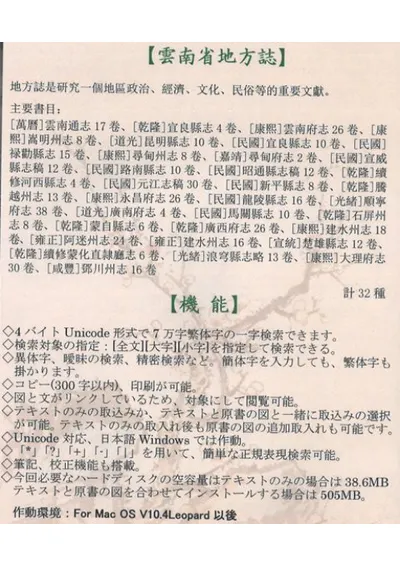 【雲南省地方誌】
地方誌是研究一個地區政治、經濟、文化、民俗等的重要文獻。
主要書目：
[萬曆]雲南通志 17 卷、[乾隆]宜良縣志 4 卷、[康熙]雲南府志 26 卷、[康
熙]嵩明州志 8 卷、[道光]昆明縣志 10 卷、[民國]宜良縣志 10 卷、[民國]
祿勸縣志 15 卷、[康熙]尋甸州志 8 卷、[嘉靖]尋甸府志 2 卷、[民國]宣威
縣志稿 12 卷、[民國]路南縣志 10 卷、[民國]昭通縣志稿 12 卷、[乾隆]續
修河西縣志 4 卷、[民國]元江志稿 30 卷、[民國]新平縣志 8 卷、[乾隆]騰
越州志 13 卷、[康熙]永昌府志 26 卷、[民國]龍陵縣志 16 卷、[光緒]順寧
府志 38 卷、[道光]廣南府志 4 卷、[民國]馬關縣志 10 卷、[乾隆]石屏州
志 8 卷、[乾隆]蒙自縣志 6 卷、[乾隆]廣西府志 26 卷、[康熙]建水州志 18
卷、[雍正]阿迷州志 24 卷、[雍正]建水州志 16 卷、[宣統]楚雄縣志 12 卷、
[乾隆]續修蒙化直隸廳志 6 卷、[光緒]浪穹縣志略 13 卷、[康熙]大理府志
30 卷、[咸豐]鄧川州志 16 卷
計 32 種
【機 能】
◇4 バイト Unicode 形式で 7 万字繁体字の一字検索できます。
◇検索対象の指定：[全文][大字][小字]を指定して検索できる。
◇異体字、曖昧の検索、精密検索など。簡体字を入力しても、繁体字も
掛かります。
◇コピー(300 字以内)、印刷が可能。
◇図と文がリンクしているため、対象にして閲覧可能。
◇テキストのみの取込みか、テキストと原書の図と一緒に取込みの選択
が可能。テキストのみの取入れ後も原書の図の追加取入れも可能です。
◇Unicode 対応、日本語 Windows では作動。
◇「*」「?」「+」「-」「|」を用いて、簡単な正規表現検索可能。
◇筆記、校正機能も搭載。
◇今回必要なハードディスクの空容量はテキストのみの場合は 38.6MB
テキストと原書の図を合わせてインストールする場合は 505MB。
作動環境：For Mac OS V10.4Leopard 以後